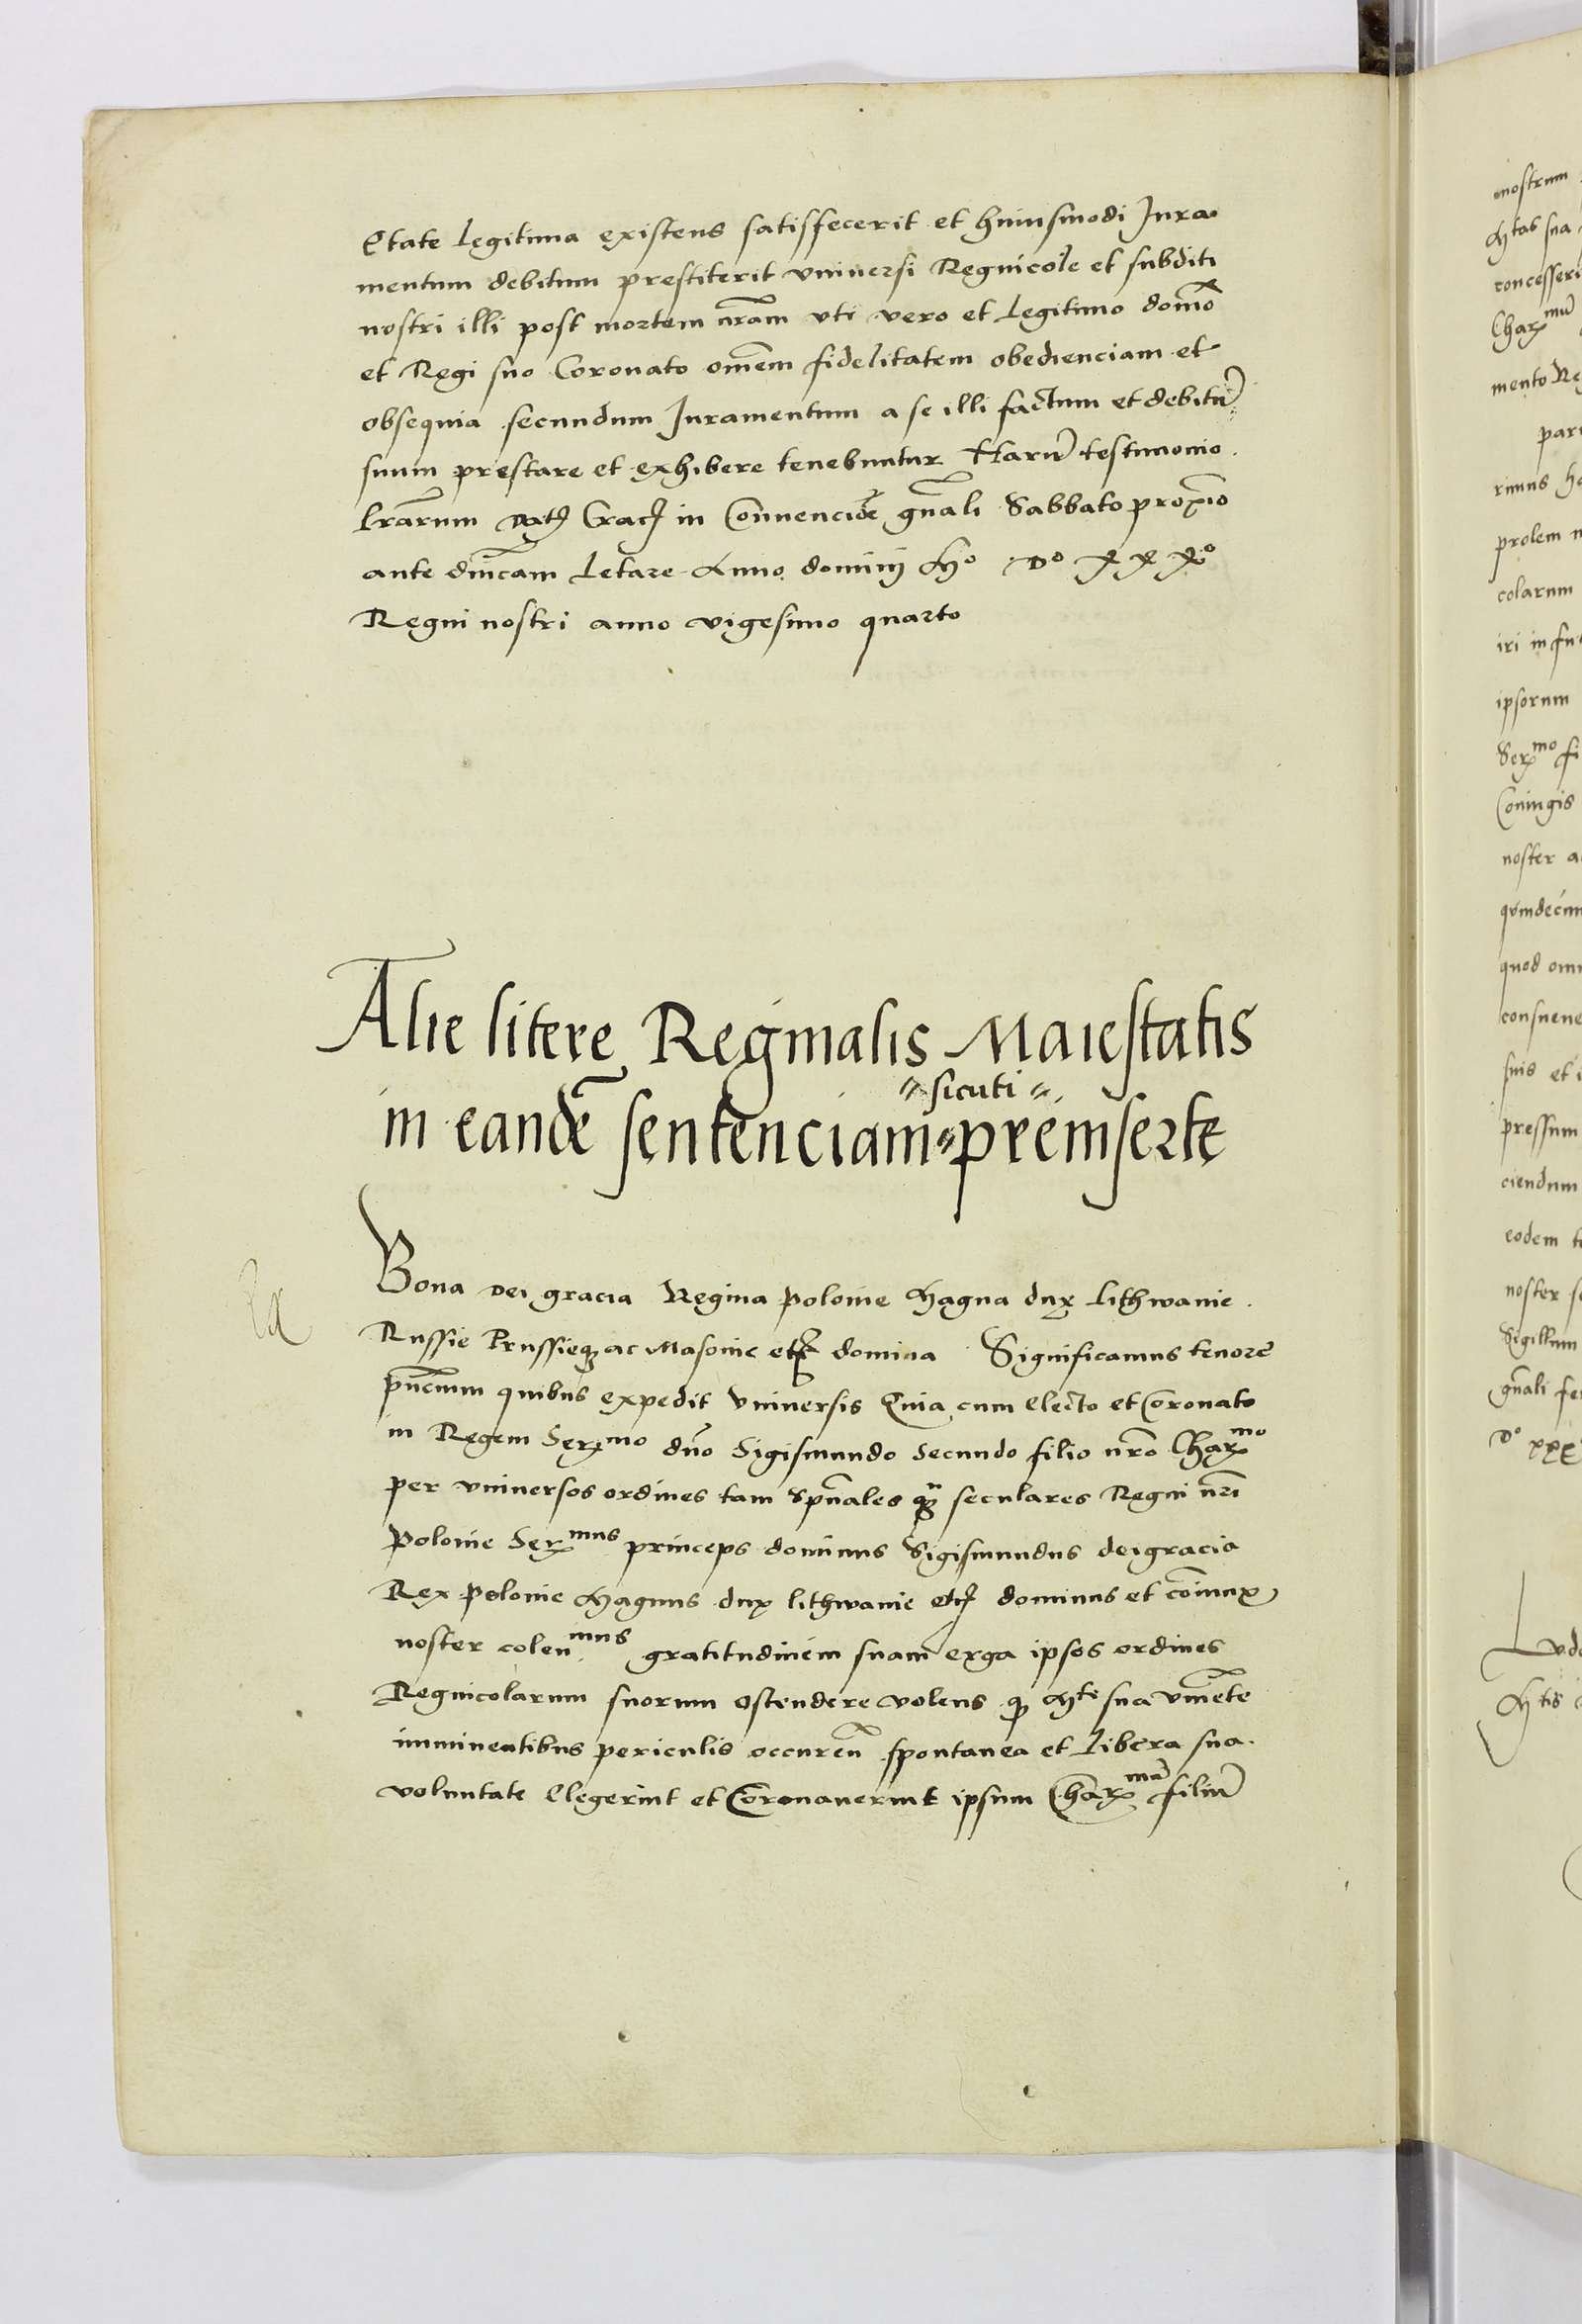 Etate legitima existens satisfecerit et huiusmodi Jura⸗
mentum debitum prestiterit vniuersi Regnicole et subditi
nostri illi post mortem nr̃am vti vero et legitimo domo͂
et Regi suo Coronato om̃em fidelitatem obedienciam et
obsequia secundum Juramentum a se illi factum et debitũ
suum prestare et exhibere tenebuntur Harũ testimonio
lr̃arum Datꝭ Cracꝭ in Conuencio͂e gn̄ali Sabbato proximo
ante dn̄icam letare Anno domini Mº Dº xxxº
Regni nostri anno vigesimo quarto
Alie litere Reginalis Maiestatis
sicuti
in eandẽ sentenciam preinserte
Bona dei gracia Regina Polonie Magna dux Lithwanie
Russie Prussieqꝫ ac Masouie etcꝭ domina Significamus tenorẽ
pn̄cium quibus expedit Vniuersis Quia cum Electo et Coronato
in Regem Serᵐᵒ dn̄o Sigismundo Secundo filio nr̃o Charᵐᵒ
per vniuersos ordines tam Spūales qᷓꝫ seculares Regni nr̃i
Polonie Serᵐᵘˢ princeps dominus Sigismundus dei gracia
Rex Polonie Magnus dux lithwanie etcꝭ dominus et cõiunx
noster colenᵐᵘˢ gratitudinem suam erga ipsos ordines
Regnicolarum suorum ostendere volens qꝫ Mᵗⁱ sue
imminentibus periculis occureñ spontanea et libera sua
voluntate Elegerint et Coronauerint ipsum Charᵐũ filiũ
nostrum
Mᵗᵃˢ sua
concesseri
Charᵐũ
mento Re
pari
rimus
prolem
colarum
iri in fu
ipsorum
Serᵐᵒ fi
Coniugis
noster a
quindecim
quod om
consueue
suis et
pressum
ciendum
eodem t
noster s
Sigillum
gn̄ali fe
Dº xxx
Mᵗⁱˢ